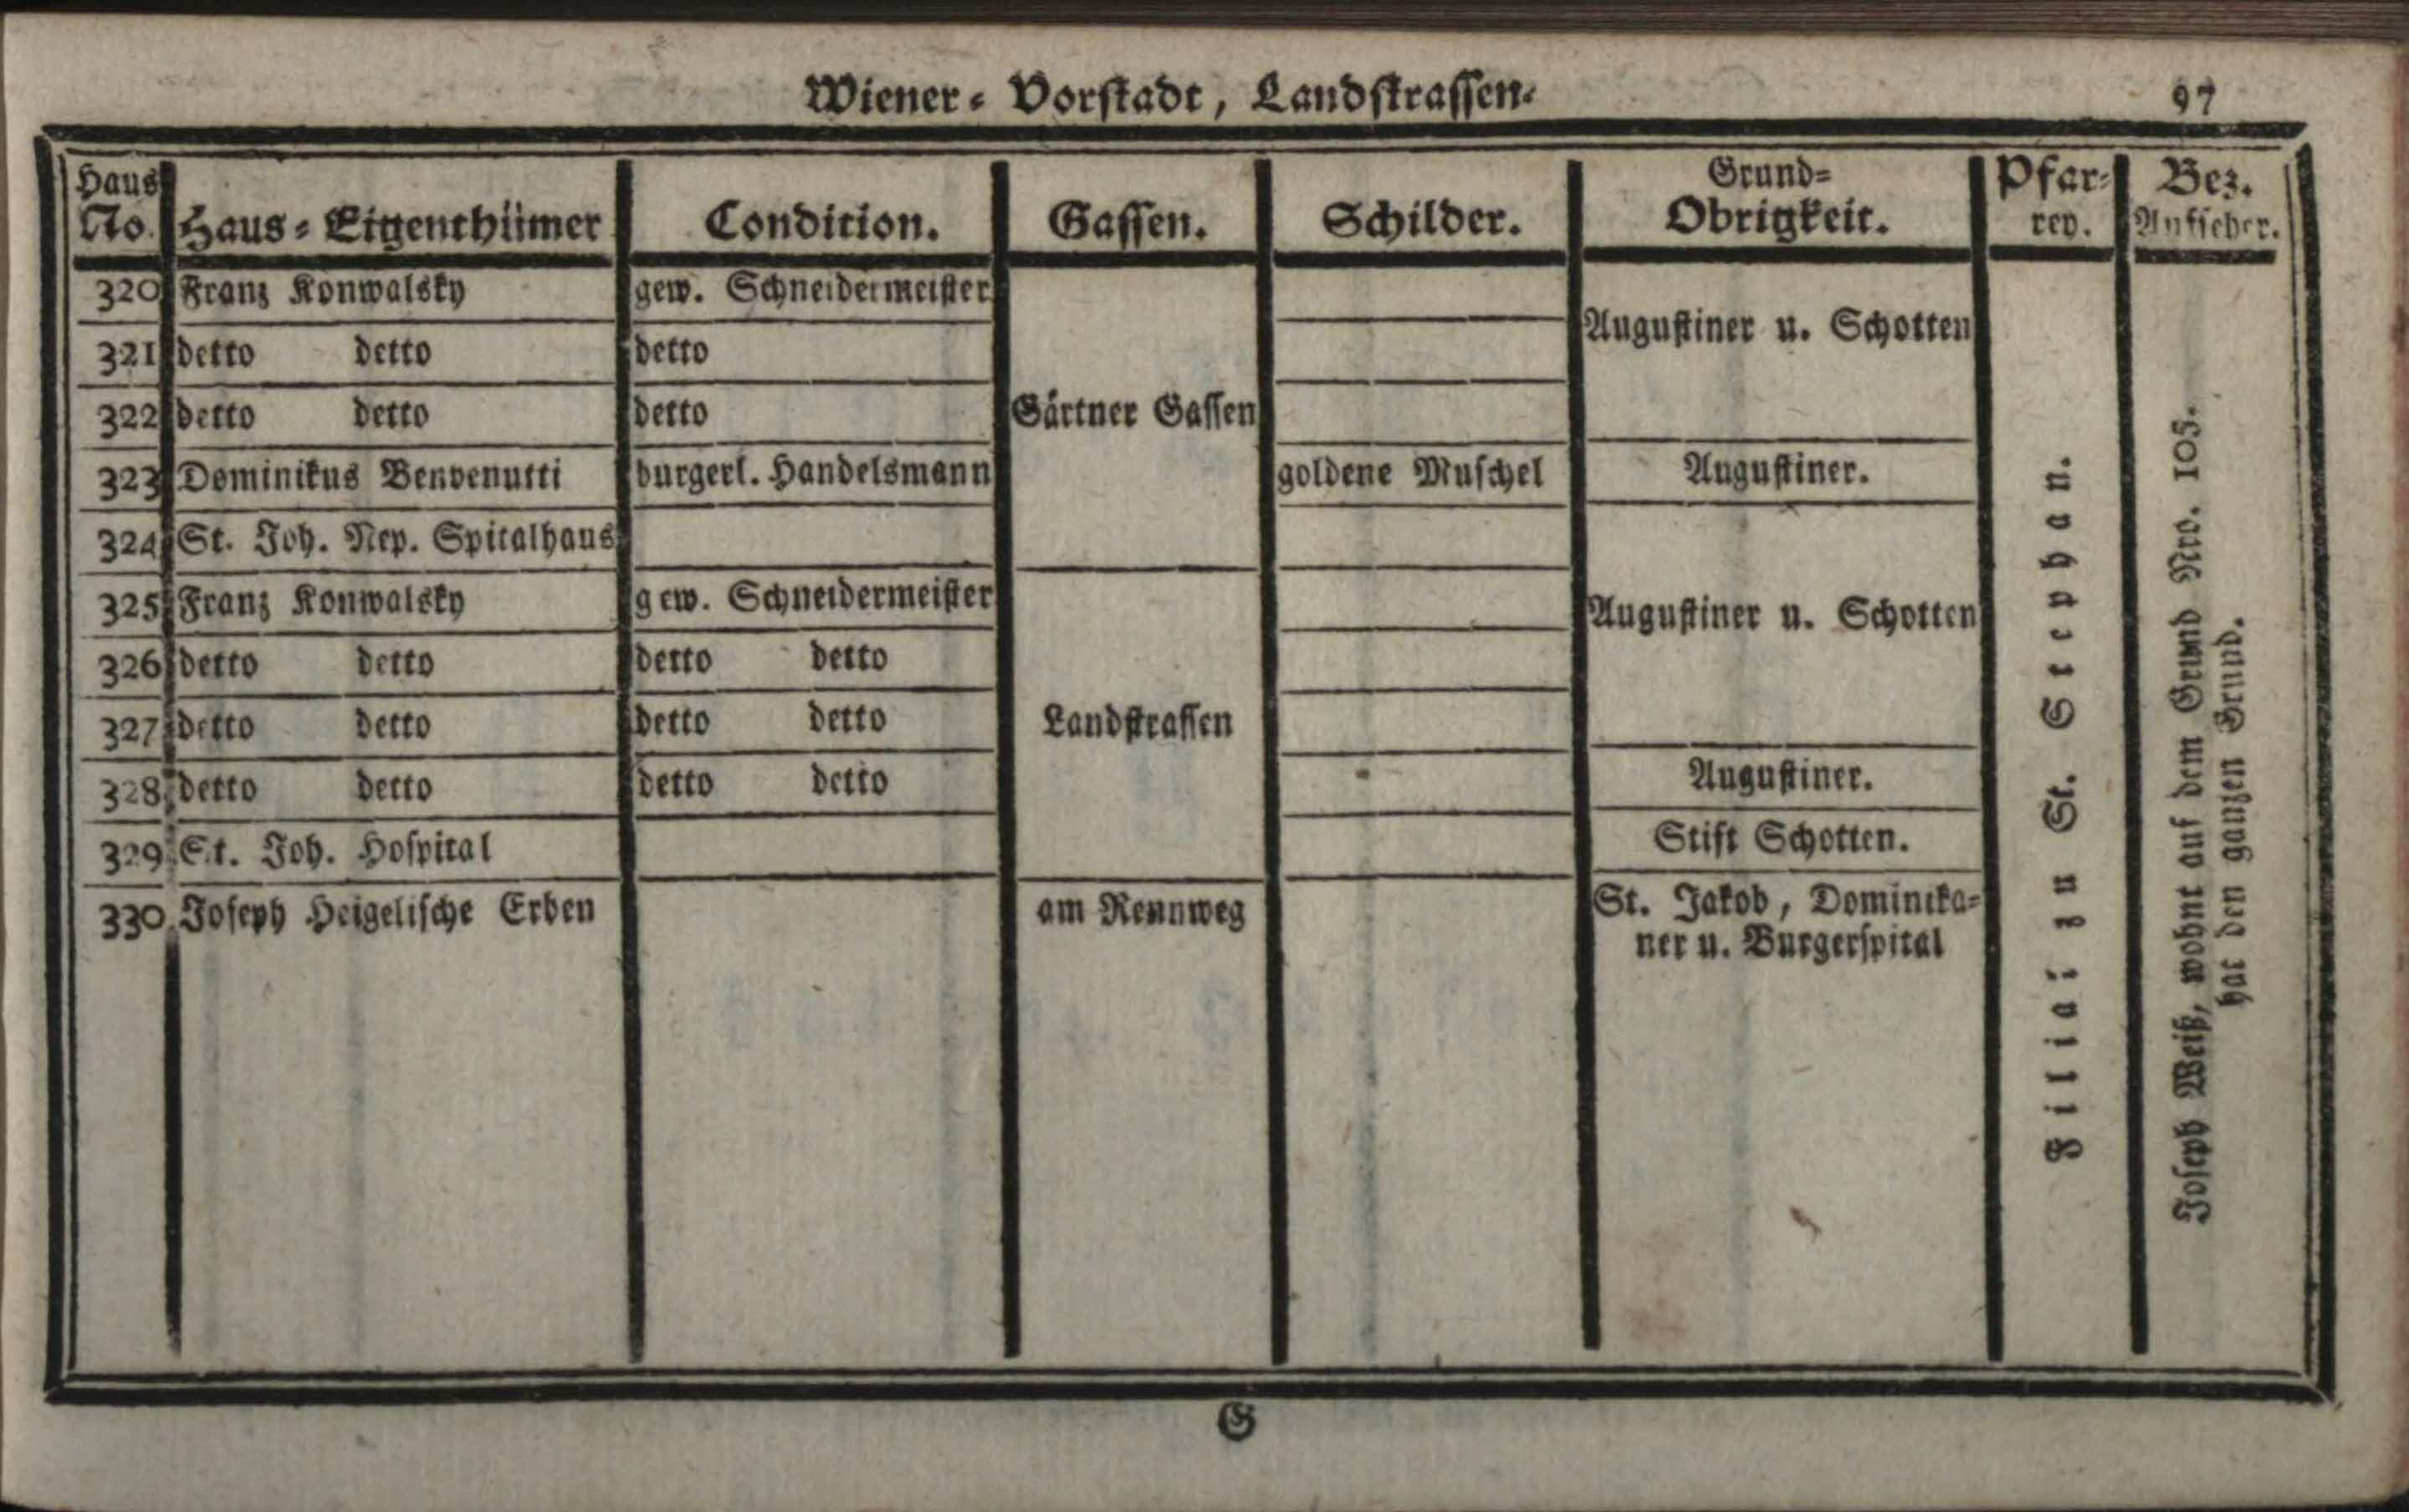 Wiener- Vorstadt, Landstrassen-
97
Haus No.
Haus-Eigenthümer
Condition.
Gassen.
Schilder.
Grund-Obrigkeit.
Pfarrey.
Bez. Aufseher.
320 Franz Konwalsky gew. Schneidermeister
Augustiner u. Schotten
321 detto detto detto
322 detto detto detto
Gärtner Gassen
323 Dominikus Benvenutti burgerl. Handelsmann goldene Muschel Augustiner.
324 St. Joh. Nep. Spitalhaus
325 Franz Konwalsky gew. Schneidermeister
Augustiner u. Schotten
326 detto detto detto detto
327 detto detto detto detto
Landstrassen
328 detto detto detto detto Augustiner.
329 St. Joh. Hospital Stift Schotten.
330 Joseph Heigelische Erben am Rennweg St. Jakob, Dominika-
ner u. Burgerspital
Filial zu St. Stephan.
Joseph Weiß, wohnt auf dem Grund Nro. 105.
hat den ganzen Grund.
G